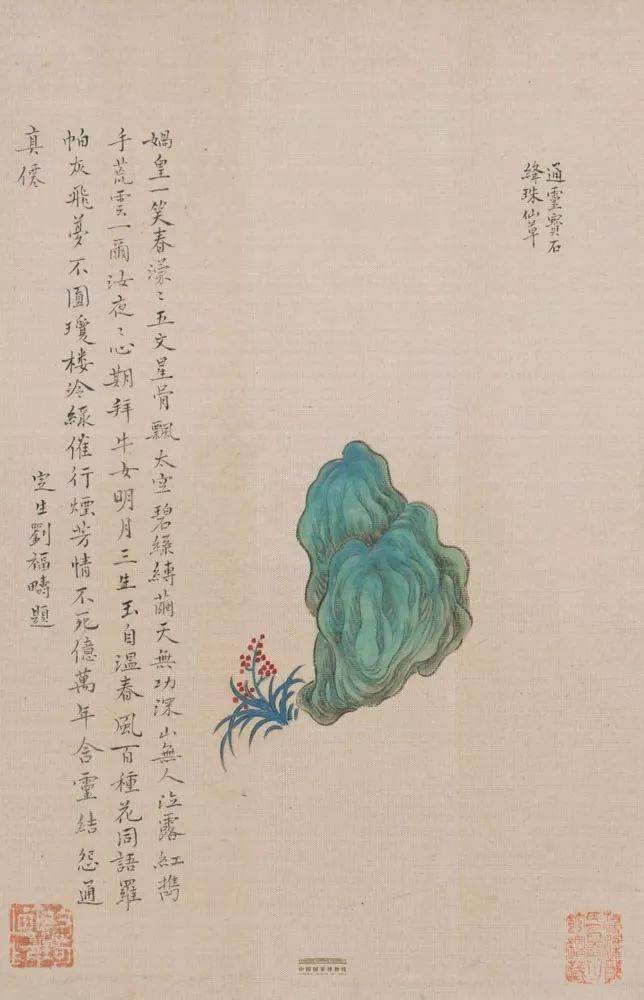 通靈寶石
絳珠仙草
媧皇一笑春濛〻五文星骨飄太空碧繅縛繭天無功深山無人泣露紅攜
手荒雲一爾汝夜〻心期拜牛女明月三生玉自溫春風百種花同語羅
帕灰飛夢不圓瓊樓冷綠催行煙芳情不死億萬年含靈結怨通
真僊
定生劉福疇題
中國國家博物館